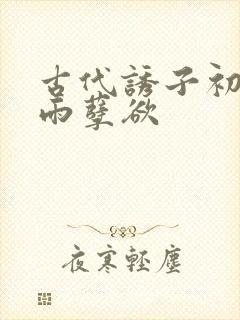 古代誘子初
雨孽欲
夜寒輕塵